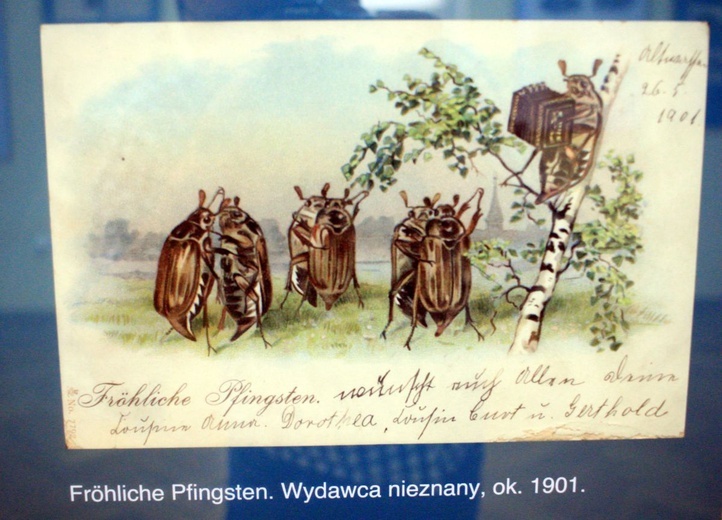 26. 5.
1901
Fröhliche Pfingsten. wünscht euch Allen deine
Cousine Anna. Dorothea, Cousin Curt u. Gerthold
Fröhliche Pfingsten. Wydawca nieznany, ok. 1901.